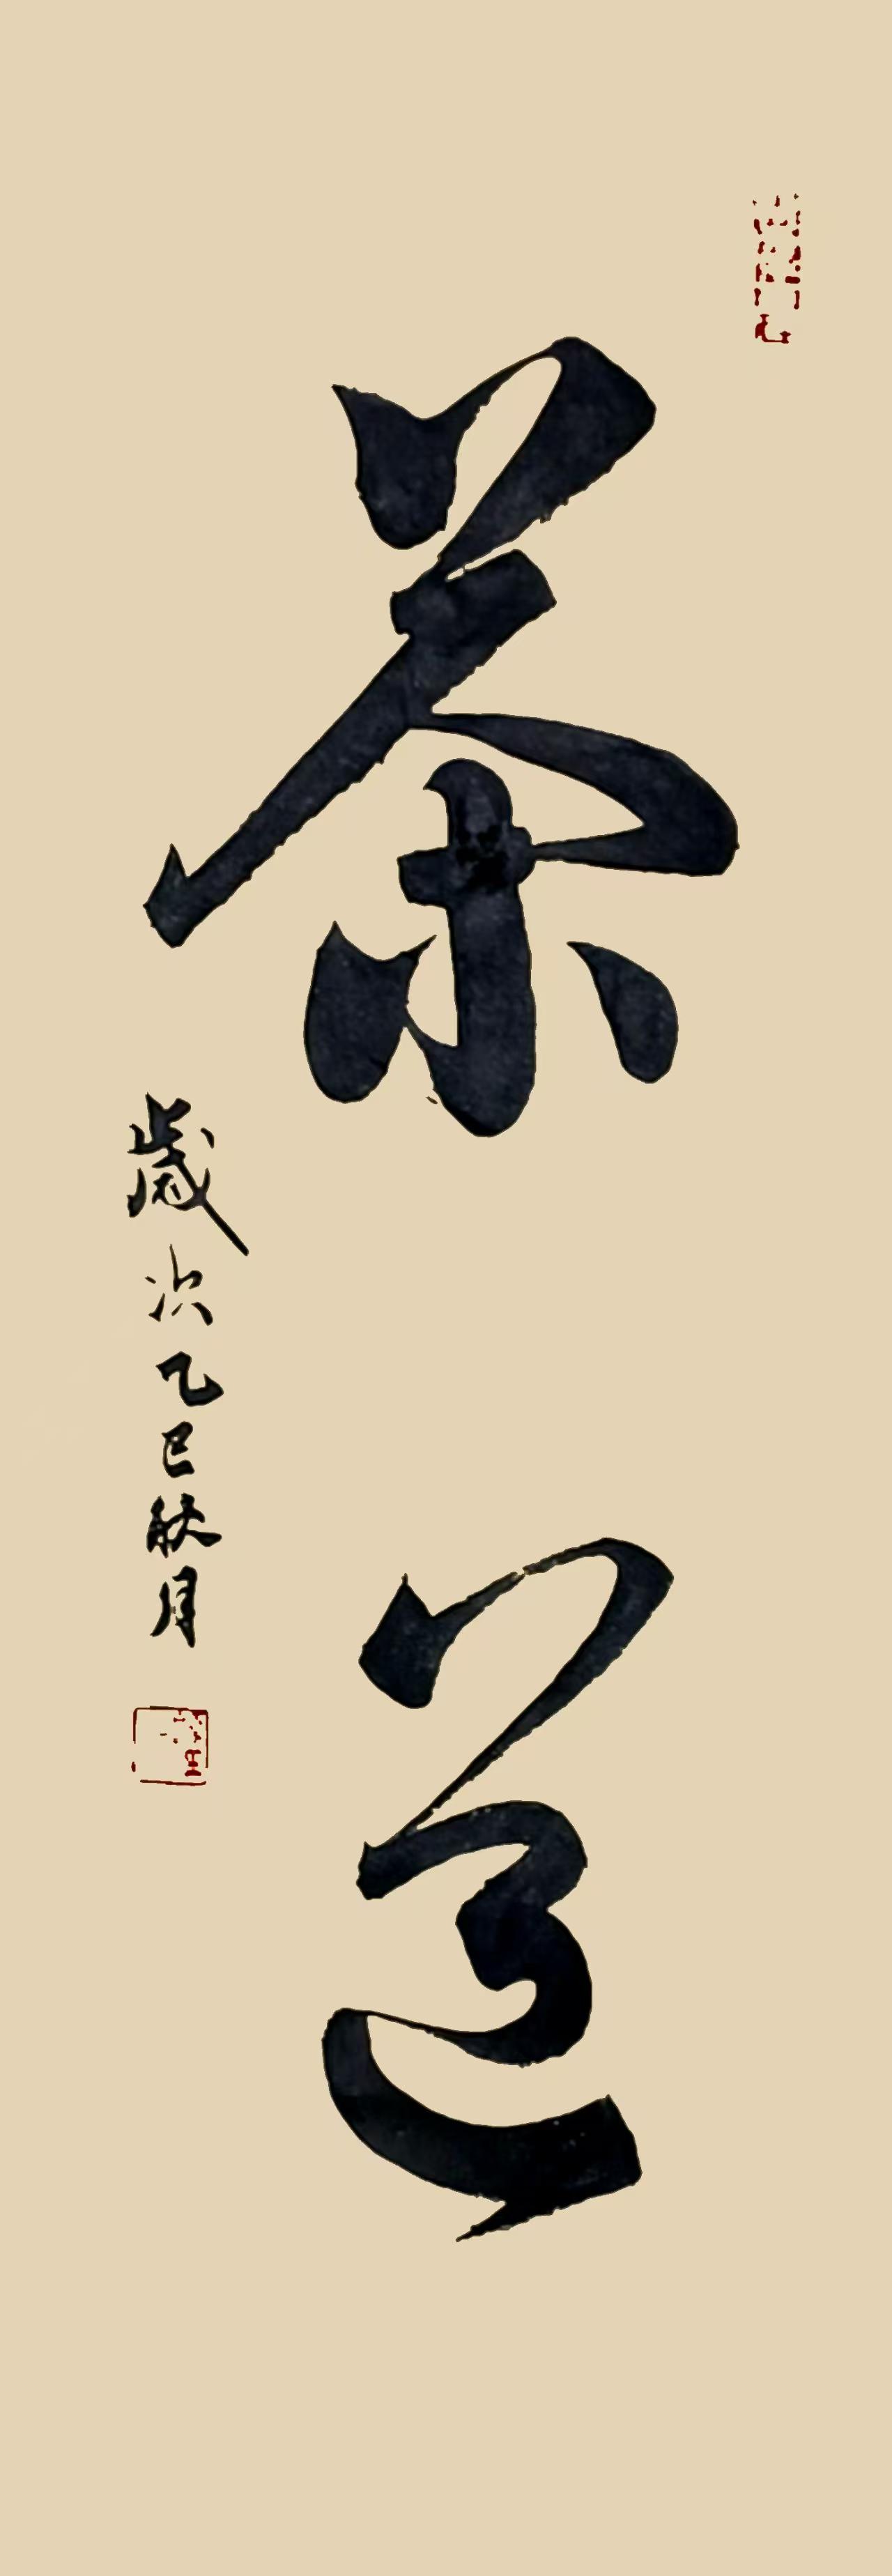 茶道
歲次乙巳秋月